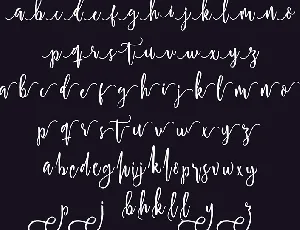 a b c d e f g h i j k l m n o
p q r s t u v w x y z
a b c d e f g h i j k l m n o
p q r s t u v w x y z
a b c d e g h i j k l o p r s v w x y
p j b h k l l y z